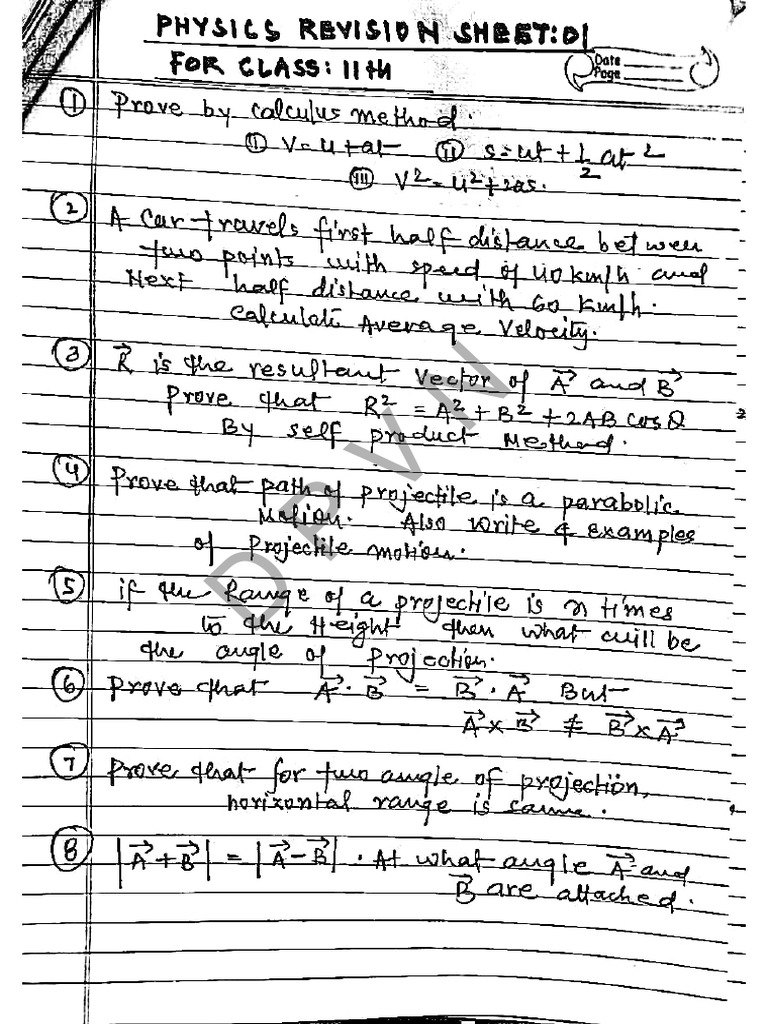 PHYSICS REVISION SHEET:01
FOR CLASS: 11th
Date
Page
① Prove by calculus method.
Ⓘ V=u+at Ⓘⓘ s=ut+1/2 at²
ⓘⓘⓘ V²=u²+2as.
② A Car travels first half distance between
two points with speed of 40 km/h and
Next half distance with 60 km/h.
Calculate Average Velocity.
③ R⃗ is the resultant vector of A⃗ and B⃗
Prove that R² = A²+B²+2AB cosθ
By self product Method.
④ Prove that path of projectile is a parabolic
Motion. Also write 4 examples
of Projectile motion.
⑤ if the Range of a projectile is n times
to the Height then what will be
the angle of projection.
⑥ Prove that A⃗ . B⃗ = B⃗ . A⃗ But
A⃗ x B⃗ ≠ B⃗ x A⃗
⑦ Prove that for two angle of projection,
horizontal range is same.
⑧ |A⃗ + B⃗| = |A⃗ - B⃗| . At what angle A⃗ and
B⃗ are attached.
DPVN